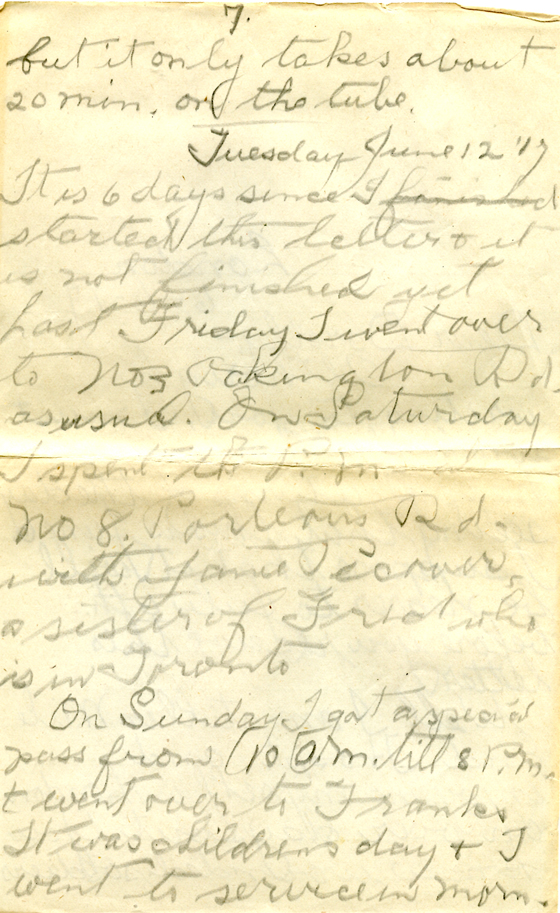 7.
but it only takes about
20 min. on the tube.
Tuesday June 12 '17
It is 6 days since I finished
started this letter & it
is not finished yet
Last Friday I went over
to No 3 Pakington Rd.
as usual. On Saturday
I spent the P.M. at
No 8. Porteous Rd.
with Jamie Pecover,
a sister of Fred who
is in Toronto
On Sunday I got a special
pass from 10 a.m. till 8 P.m.
& went over to Franks
It was childrens day & I
went to service in morn.